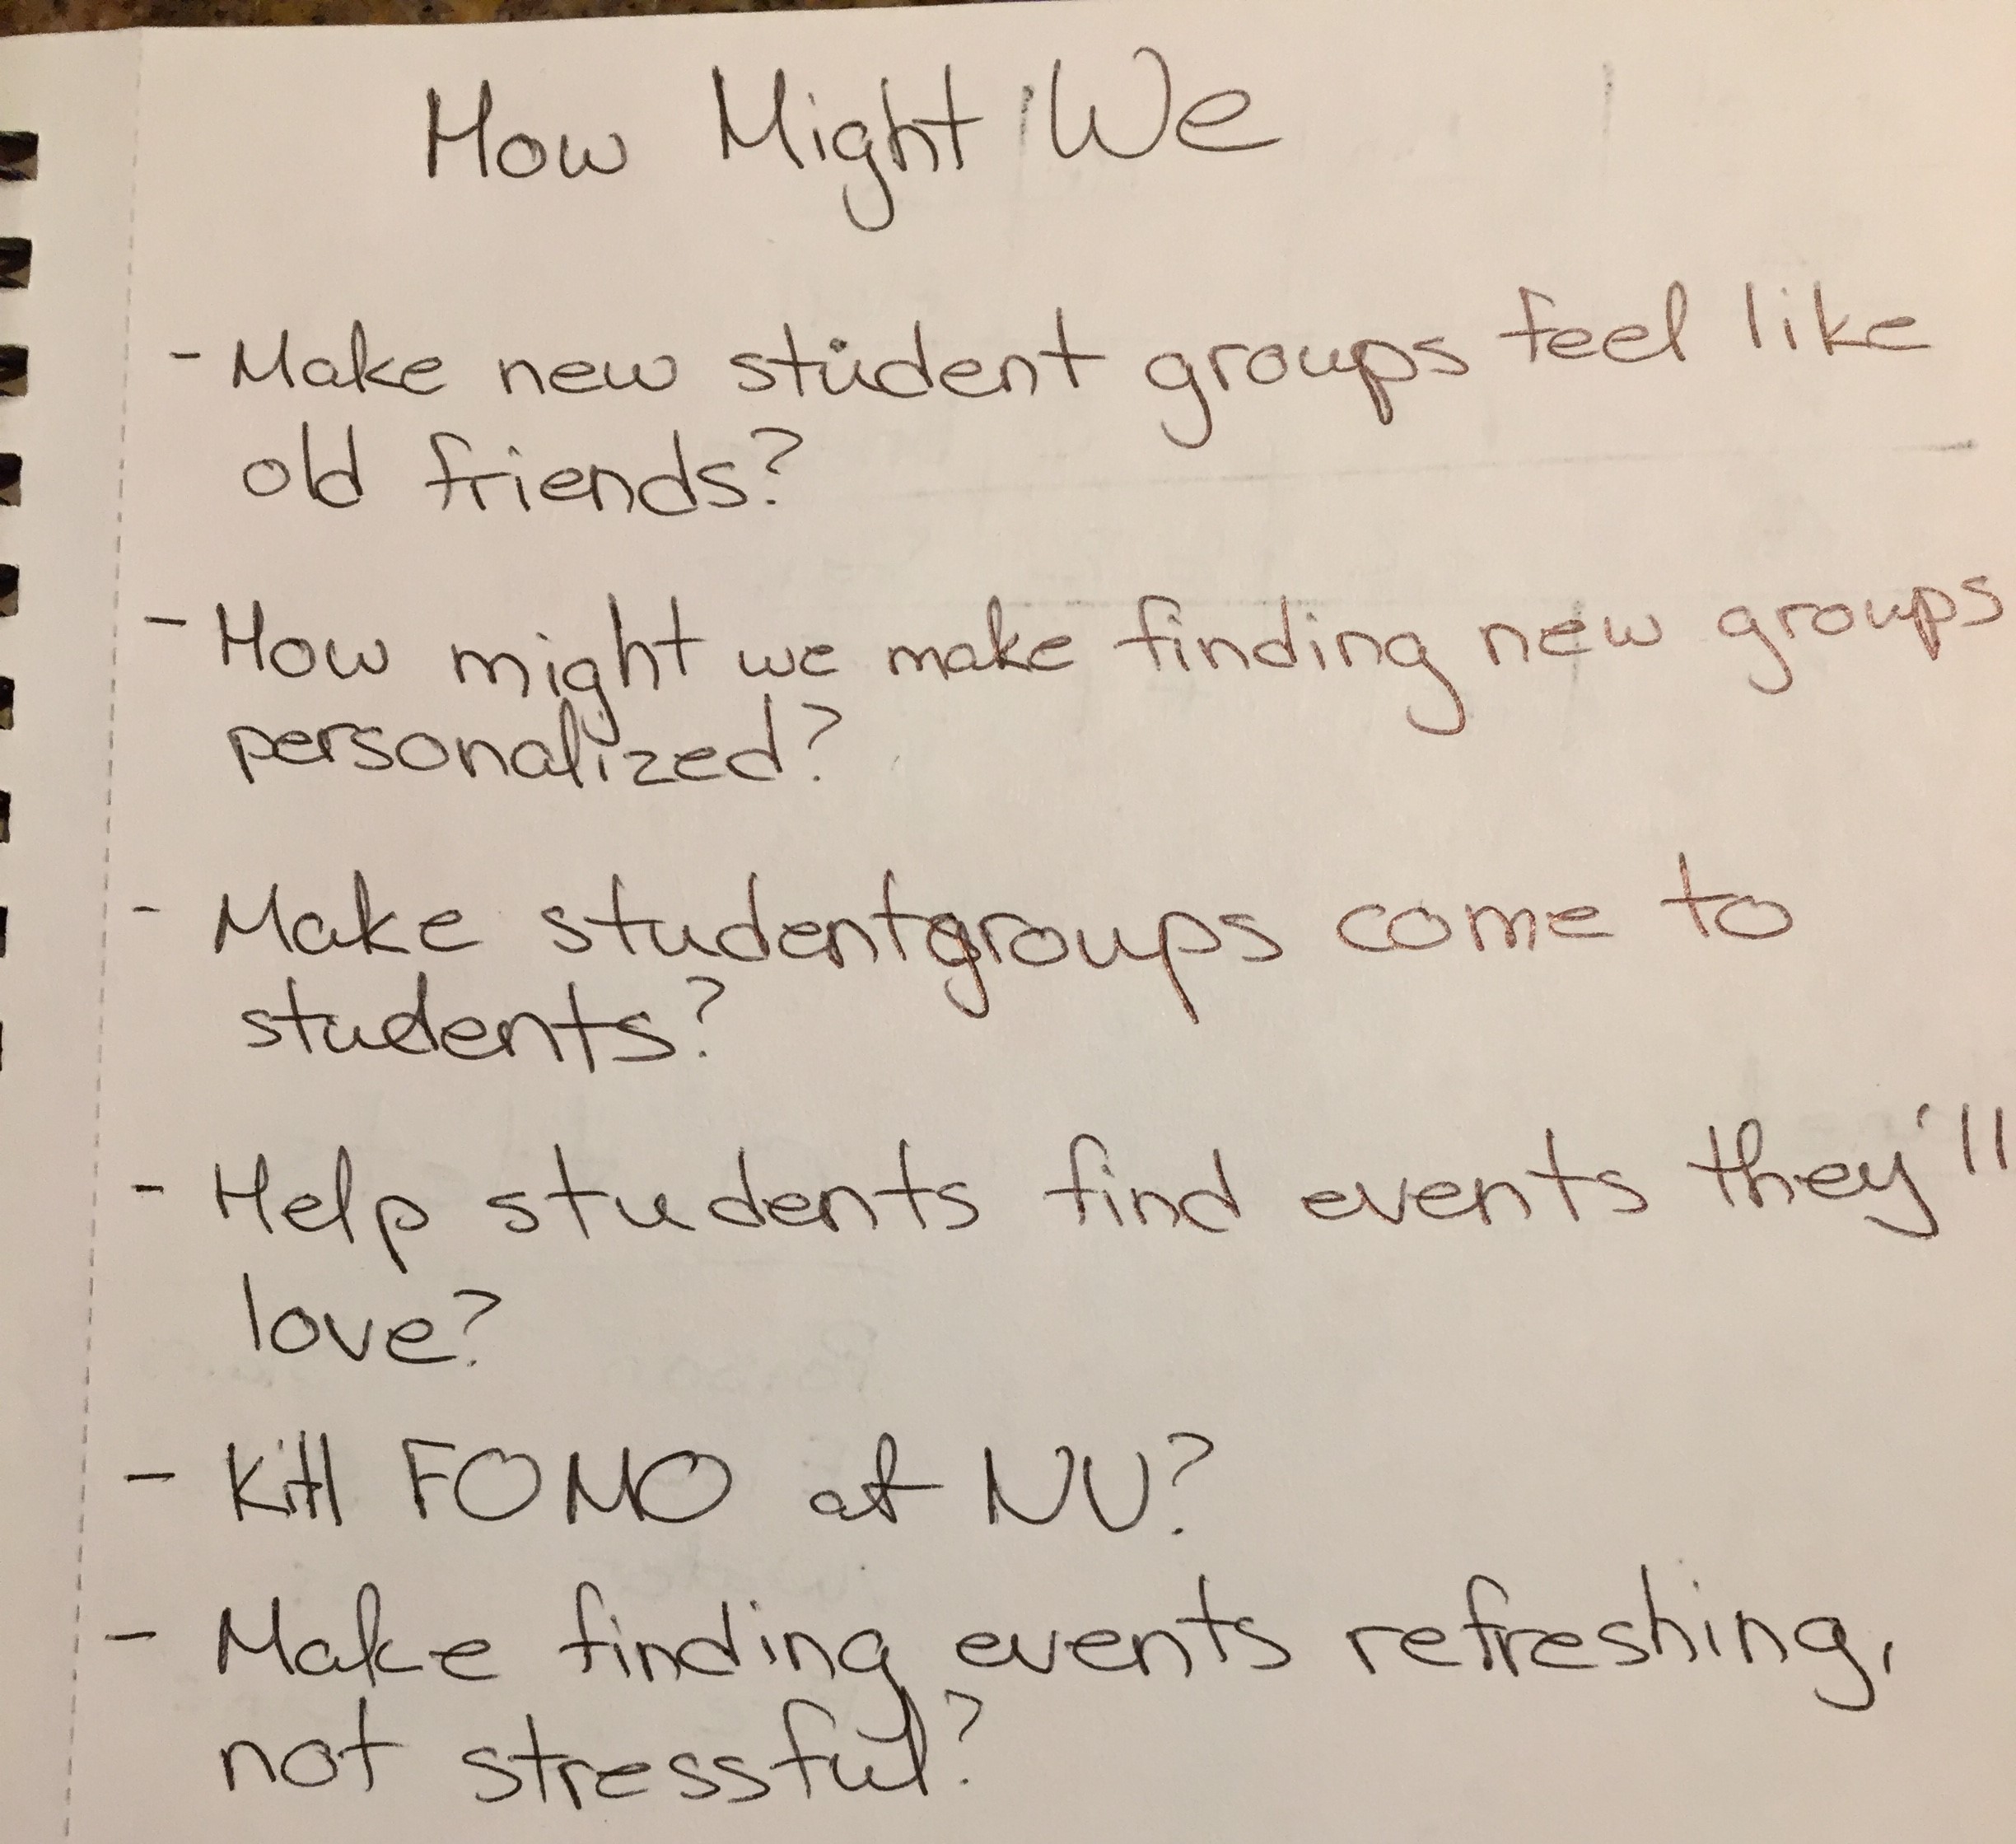 How Might We
- Make new student groups feel like
old friends?
- How might we make finding new groups
personalized?
- Make studentgroups come to
students?
- Help students find events they'll
love?
- Kill FOMO at NU?
- Make finding events refreshing,
not stressful?